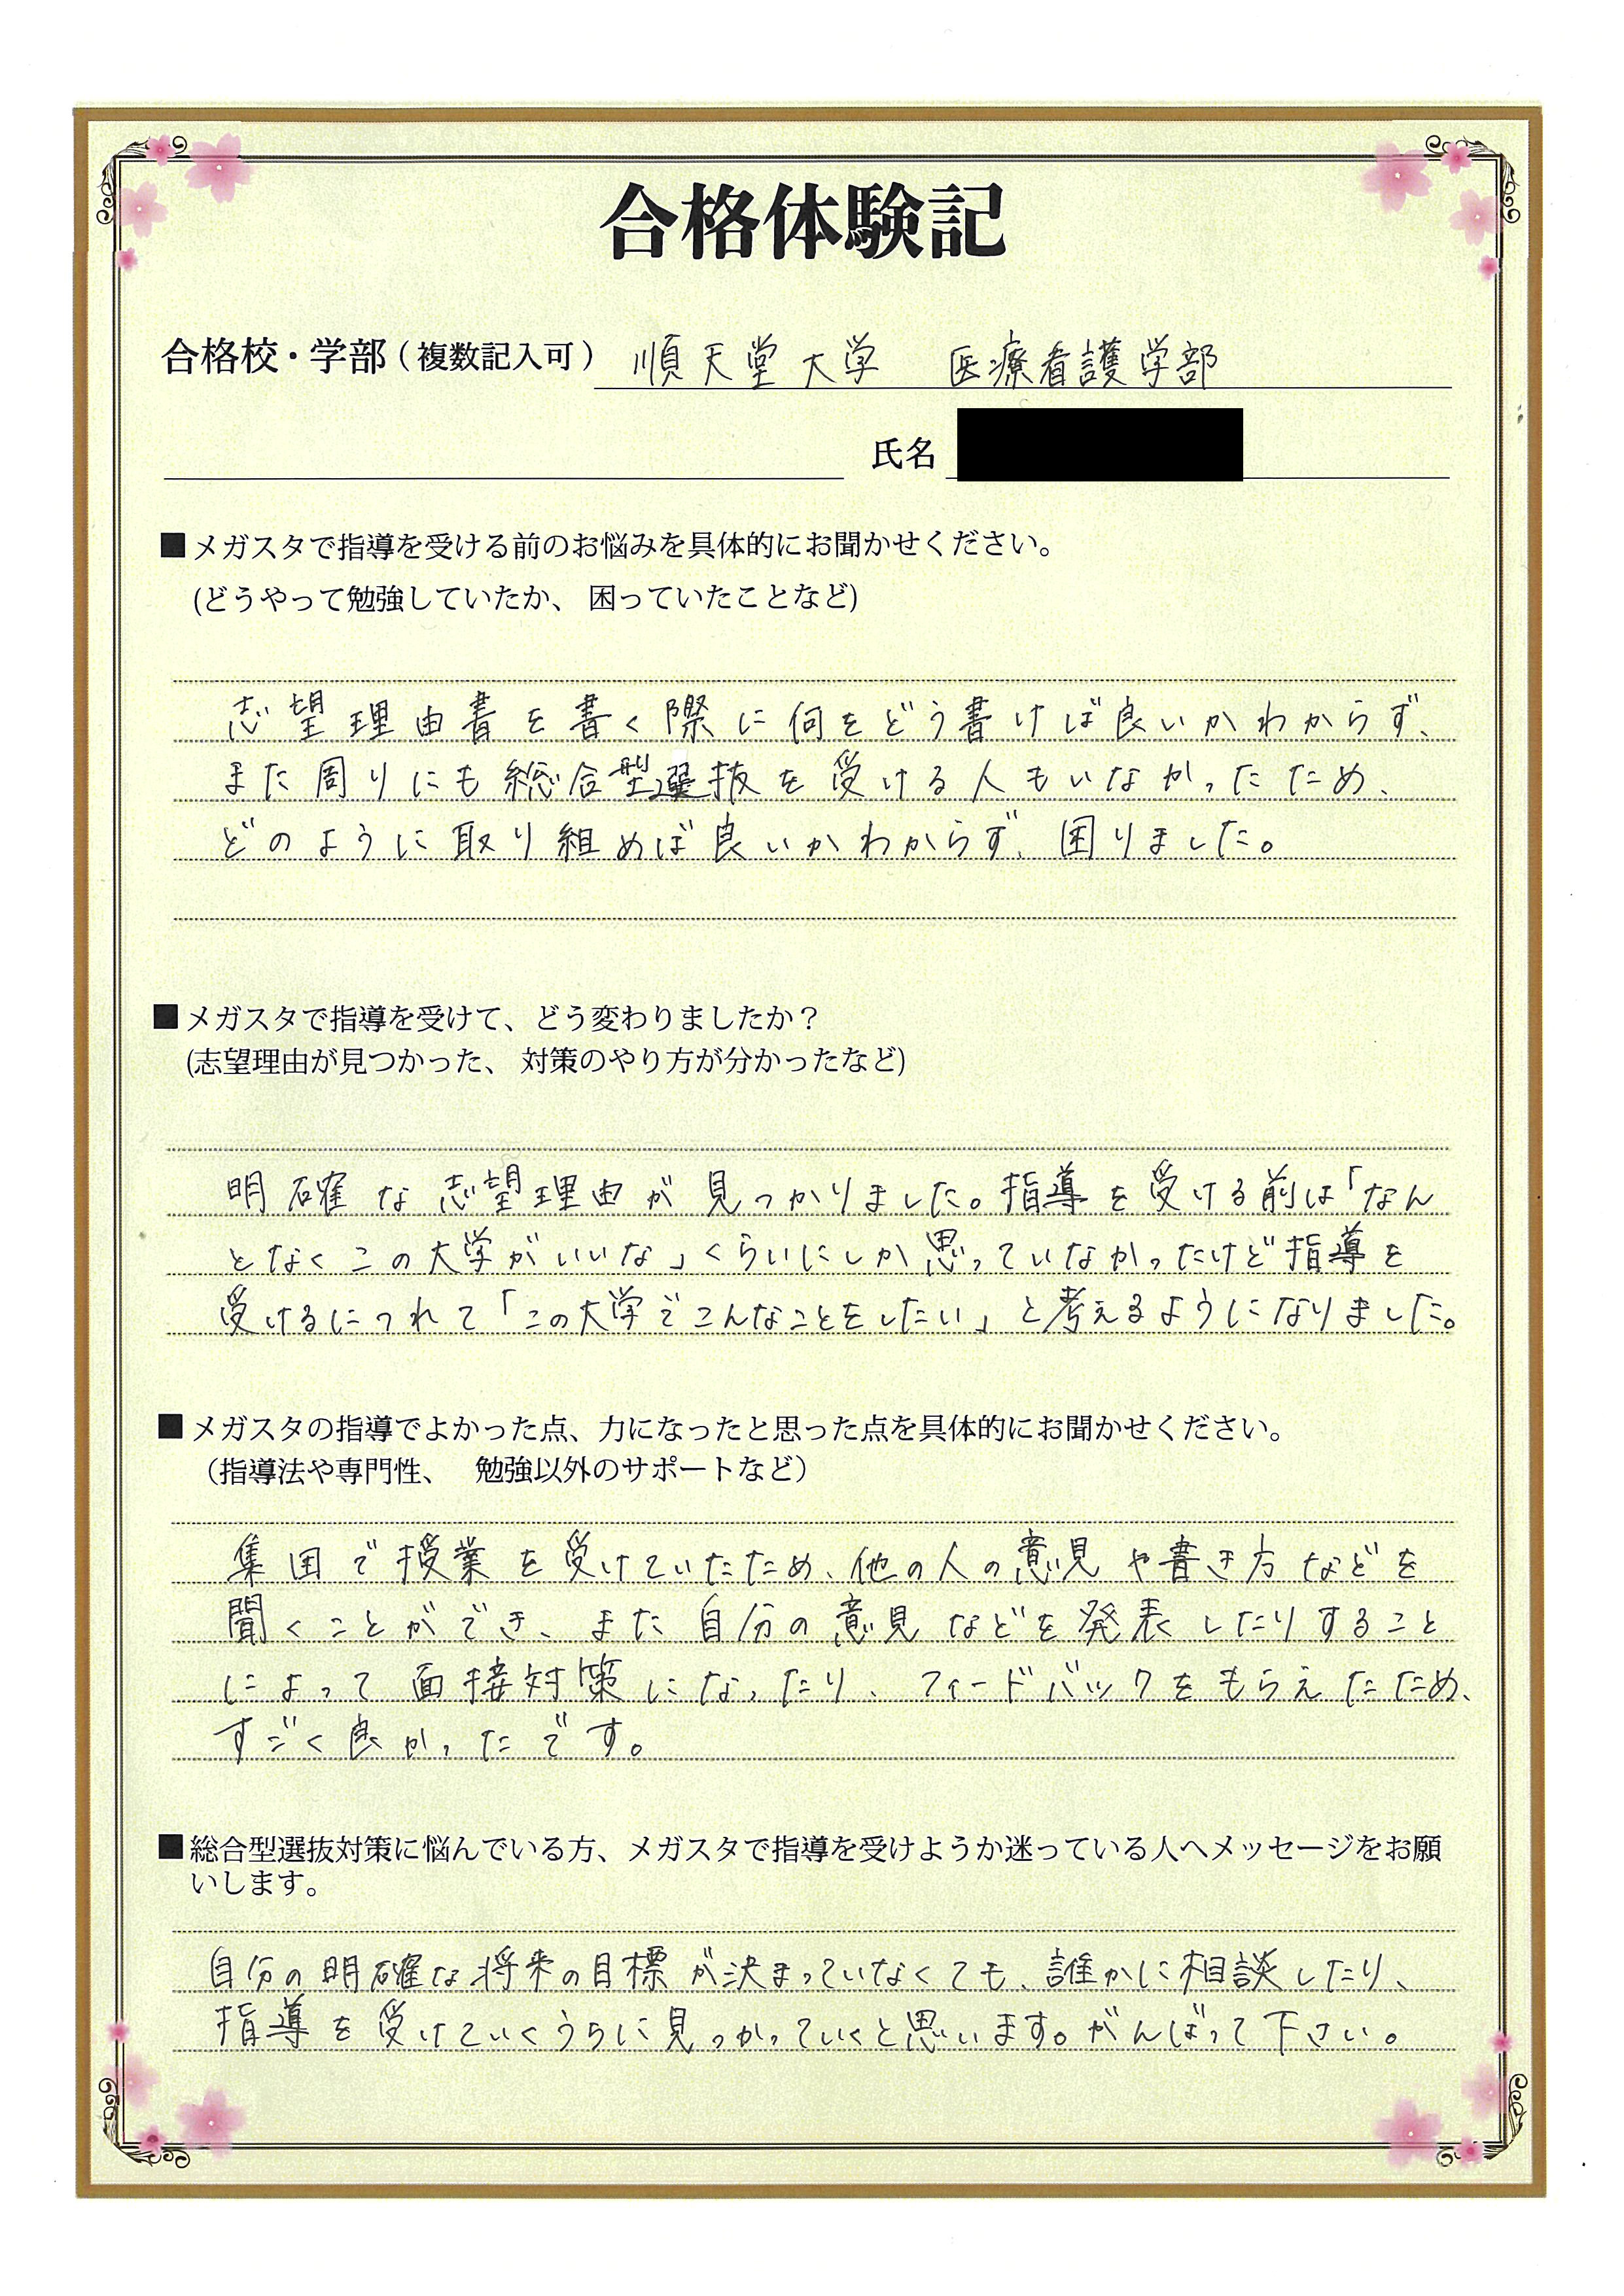 合格体験記
合格校・学部(複数記入可) 順天堂大学 医療看護学部
氏名
■メガスタで指導を受ける前のお悩みを具体的にお聞かせください。
(どうやって勉強していたか、 困っていたことなど)
志望理由書を書く際に何をどう書けば良いかわからず、
また周りにも総合型選抜を受ける人もいなかったため、
どのように取り組めば良いかわからず、困りました。
■メガスタで指導を受けて、どう変わりましたか？
(志望理由が見つかった、 対策のやり方が分かったなど)
明確な志望理由が見つかりました。指導を受ける前は「なん
となくこの大学がいいな」くらいにしか思っていなかったけど指導を
受けるにつれて「この大学でこんなことをしたい」と考えるようになりました。
■メガスタの指導でよかった点、力になったと思った点を具体的にお聞かせください。
（指導法や専門性、 勉強以外のサポートなど）
集団で授業を受けていたため、他の人の意見や書き方などを
聞くことができ、また自分の意見などを発表したりすること
によって面接対策になったり、フィードバックをもらえたため、
すごく良かったです。
■総合型選抜対策に悩んでいる方、メガスタで指導を受けようか迷っている人へメッセージをお願
いします。
自分の明確な将来の目標が決まっていなくても、誰かに相談したり、
指導を受けていくうちに見つかっていくと思います。がんばって下さい。